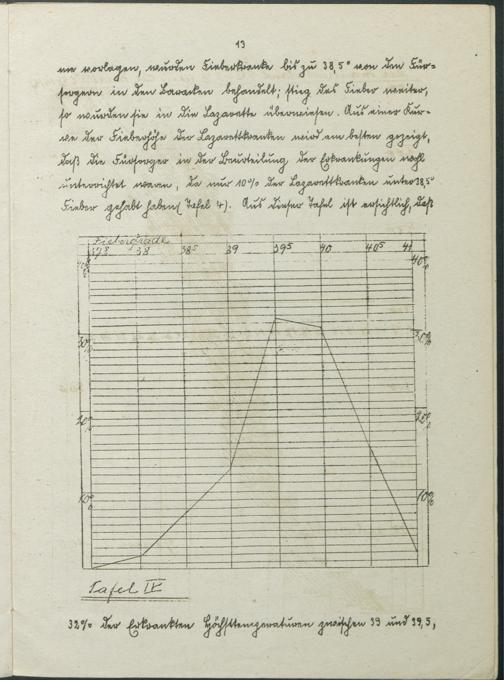 13
me vorlagen, wurden Fieberkranke bis zu 38,5° von den Für=
sorgern in den Baracken behandelt; stieg das Fieber weiter,
so wurden sie in die Lazarette überwiesen. Aus einer Kur-
ve der Fieberhöhe der Lazarettkranken wird am besten gezeigt,
daß die Fürsorger in der Beurteilung der Erkrankungen wohl
unterrichtet waren, da nur 10% der Lazarettkranken unter 38,5°
Fieber gehabt haben (Tafel 4). Aus dieser Tafel ist ersichtlich, daß
Fiebergrade
38 38⁵ 39 39⁵ 40 40⁵ 41
40% 40%
30% 30%
20% 20%
10% 10%
Tafel IV
32% der Erkrankten Höchsttemperaturen zwischen 39 und 39,5,